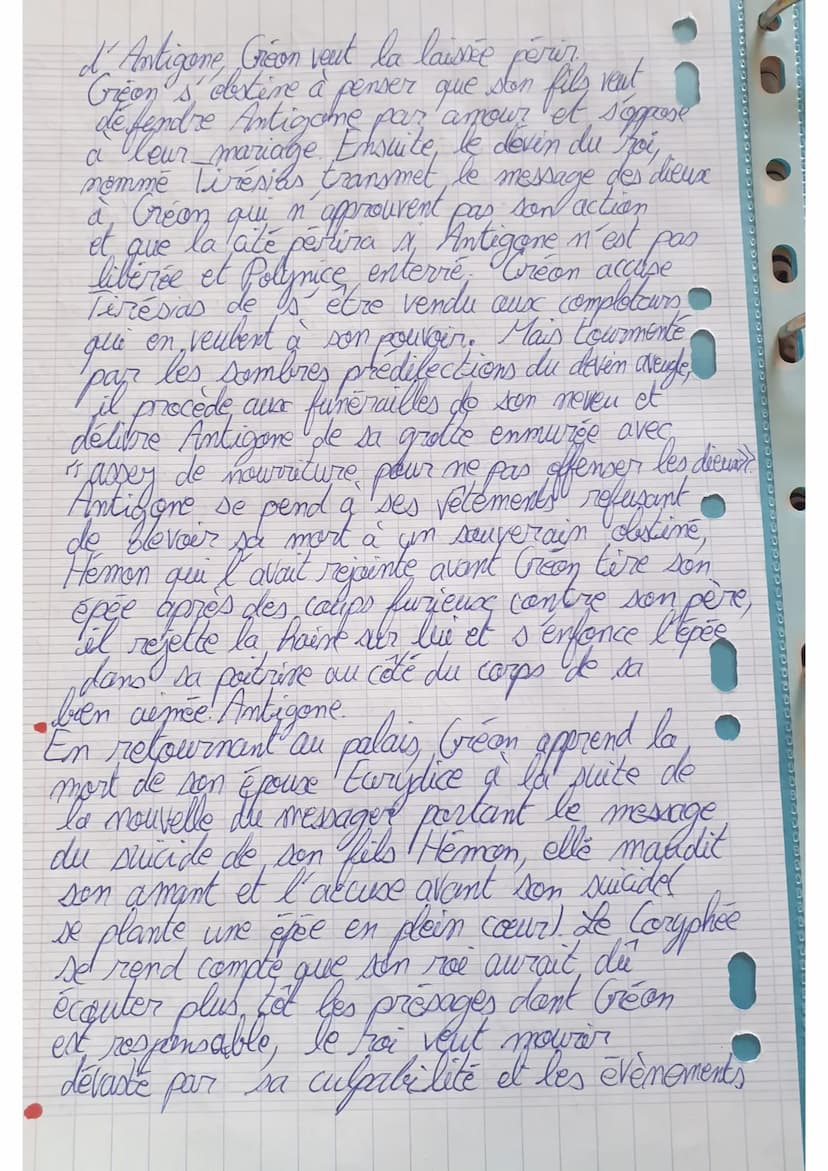 d'Antigone, Créon veut la laissée périr.
Créon s'obstine à penser que son fils veut
défendre Antigone par amour et s'oppose
a leur mariage. Ensuite, le devin du roi,
nommé Tirésias transmet le message des dieux
à Créon qui n'approuvent pas son action
et que la cité périra si Antigone n'est pas
libérée et Polynice enterré. Créon accuse
Tirésias de s'être vendu aux comploteurs
qui en veulent à son pouvoir. Mais tourmenté
par les sombres prédilections du devin aveugle,
il procède aux funérailles de son neveu et
délivre Antigone de sa grotte enmurée avec
"assez de nourriture pour ne pas offenser les dieux"
Antigone se pend à ses vêtements refusant
de devoir sa mort à un souverain obstiné,
Hémon qui l'avait rejointe avant Créon tire son
épée après des coups furieux contre son père,
il rejette la haine sur lui et s'enfonce l'épée
dans sa poitrine au côté du corps de sa
bien aimée Antigone.
En retournant au palais, Créon apprend la
mort de son épouse Eurydice à la suite de
la nouvelle du messager portant le message
du suicide de son fils Hémon, elle maudit
son amant et l'accuse avant son suicide(
se plante une épée en plein cœur). Le Coryphée
se rend compte que son roi aurait dû
écouter plus tôt les présages dont Créon
est responsable, le roi veut mourir
dévasté par sa culpabilité et les évènements